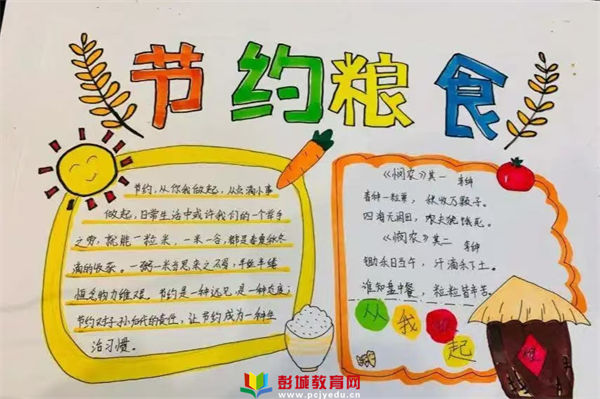 节约粮食
节约,从你我做起,从点滴小事
做起,日常生活中或许我们的一个举手
之劳,就能一粒米,一米一谷,都是春夏秋冬
滴的收获。一粥一米当思来之不易,半丝半缕
恒念物力维艰。节约是一种远见,是一种态度;
节约对子孙后代的责任,让节约成为一种生
活习惯。
《悯农》其一 李绅
春种一粒粟,秋收万颗子。
四海无闲田,农夫犹饿死。
《悯农》其二 李绅
锄禾日当午,汗滴禾下土。
谁知盘中餐,粒粒皆辛苦。
从我做起
彭城教育网
www.pcjyedu.cn